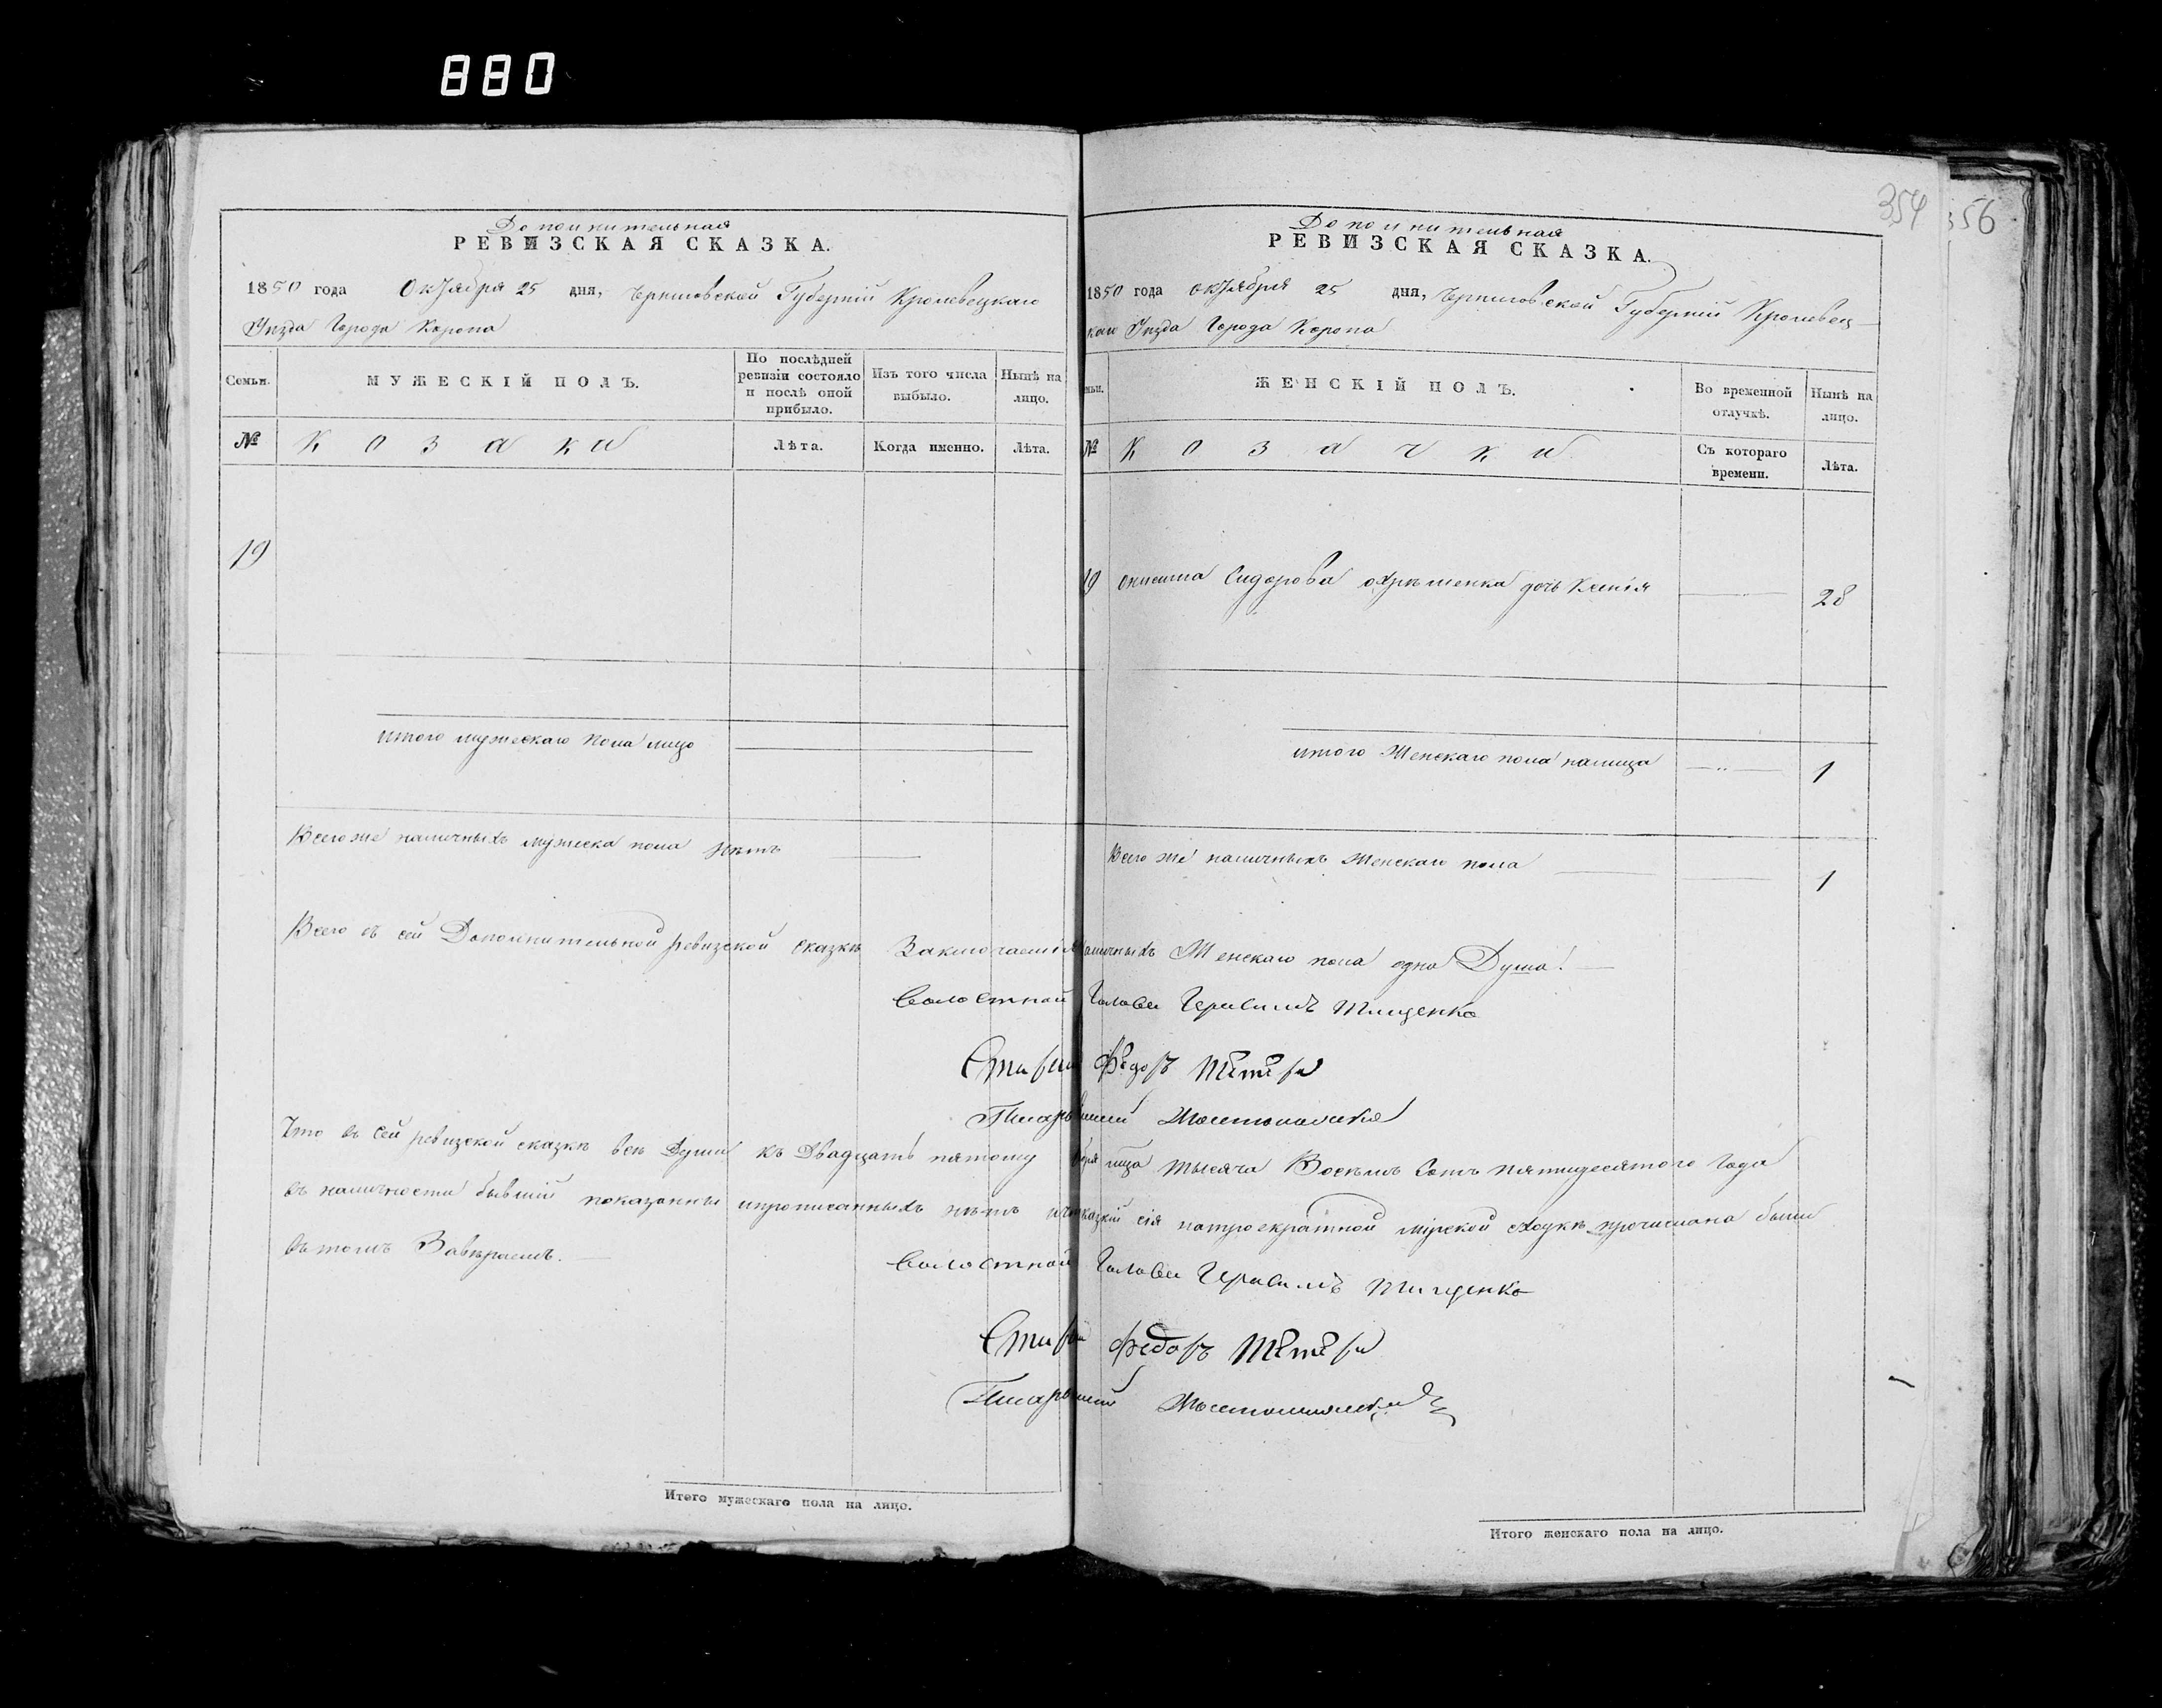 880
354
356
Дополнительная
РЕВИЗСКАЯ СКАЗКА.
1850 года Октября 25 дня, Черниговской Губернии Кролевецкаго
Уезда Города Коропа
Семьи.
МУЖЕСКІЙ ПОЛЪ.
По послѣдней ревизіи состояло и послѣ оной прибыло.
Изъ того числа выбыло.
Нынѣ на лицо.
№
Козаки
Лѣта.
Когда именно.
Лѣта.
19
итого мужескаго пола лицо
Всего же наличныхъ мужеска пола нѣтъ
Дополнительная
РЕВИЗСКАЯ СКАЗКА.
1850 года октября 25 дня, Черниговской Губерніи Кролевец-
каго Уезда Города Коропа
мьи.
ЖЕНСКІЙ ПОЛЪ.
Во временной отлучкѣ.
Нынѣ на лицо.
№
Козачки
Съ котораго времени.
Лѣта.
19 Сидорова дочь Ксенія 28
итого Женскаго пола налицо 1
Всего же наличныхъ Женскаго пола 1
Всего въ сей Дополнительной ревизской сказкѣ Заключается наличныхъ Женскаго пола одна Душа.
Волостной Голова Тищенко
Федоръ
Писарь
Что въ сей ревизской сказкѣ всѣ Души къ Двадцать пятому тысяча Восемь Сотъ пятидесятого Года
въ наличности бывшій показанны и прописанныхъ нѣтъ сія мірской прочитана были
въ томъ Завѣряемъ.
Волостной Голова Тищенко
Федоръ
Писарь
Итого мужескаго пола на лицо.
Итого женскаго пола на лицо.